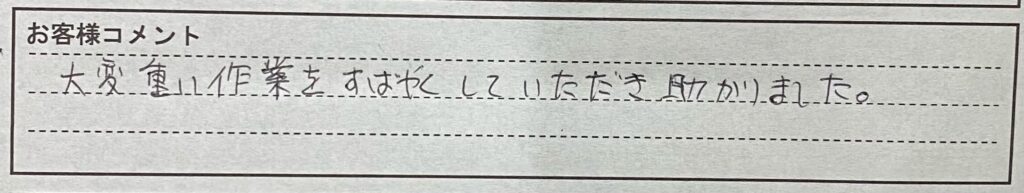 お客様コメント
大変重い作業をすばやくしていただき助かりました。